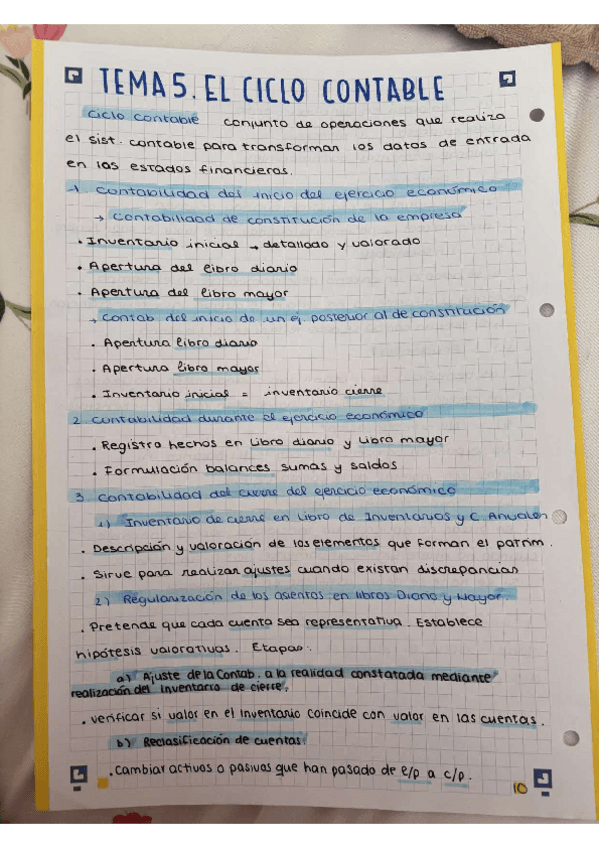 TEMA 5. EL CICLO CONTABLE
Ciclo contable conjunto de operaciones que realiza
el sist. contable para transformar los datos de entrada
en los estados financieros.
1 Contabilidad del inicio del ejercicio económico
→ Contabilidad de constitución de la empresa
• Inventario inicial → detallado y valorado
• Apertura del libro diario
• Apertura del libro mayor
→ Contab del inicio de un ej. posterior al de constitución
• Apertura libro diario
• Apertura libro mayor
• Inventario inicial = inventario cierre
2 Contabilidad durante el ejercicio económico
• Registra hechos en libro diario y libro mayor
• Formulación balances sumas y saldos
3 Contabilidad del cierre del ejercicio económico
1) Inventario de cierre en Libro de Inventarios y C. Anuales
• Descripción y valoración de los elementos que forman el patrim.
• Sirve para realizar ajustes cuando existan discrepancias
2) Regularización de los asientos en libros Diario y Mayor.
• Pretende que cada cuenta sea representativa. Establece
hipótesis valorativas. Etapas:
a) Ajuste de la Contab. a la realidad constatada mediante
realización del inventario de cierre.
• Verificar si valor en el inventario coincide con valor en las cuentas.
b) Reclasificación de cuentas
• Cambiar activos o pasivos que han pasado de l/p a c/p.
10